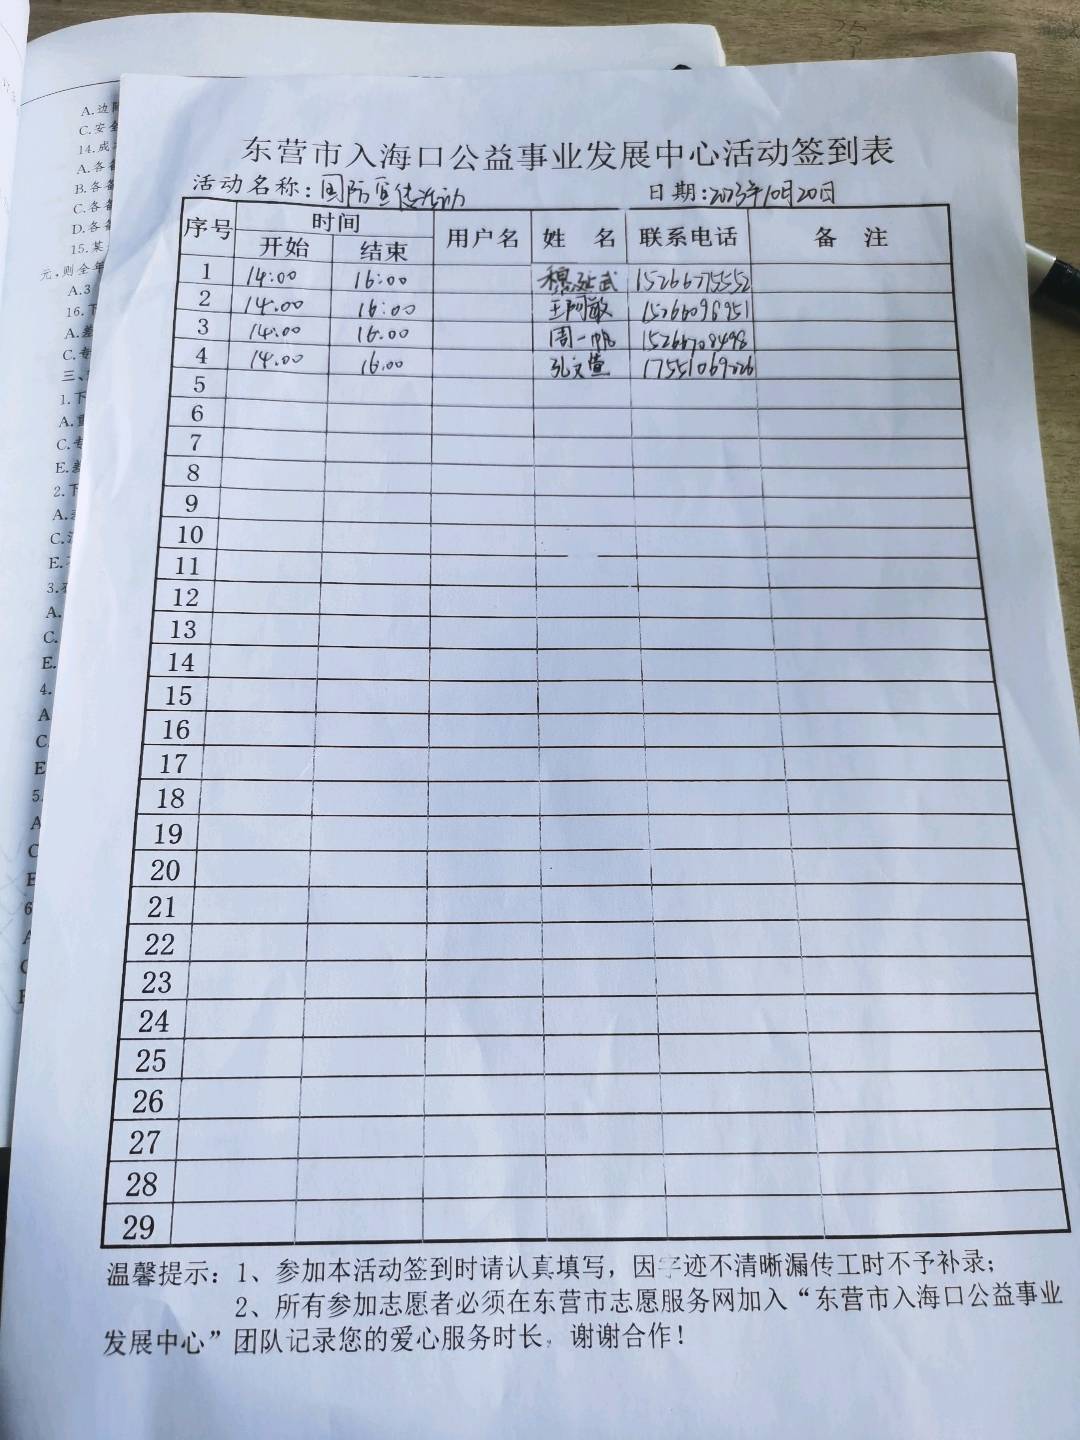 A.边
C.安全
14.成
A.各
B.各备
C.各备
D.各备
15.某
元,则全年
A.3
16.下
A.差
C.专
三、
1.下
A.重
C.专
E.差
2.下
A.
C.
E.
3.
A.
C.
E.
4.
A
C
E
5.
A
C
E
6
东营市入海口公益事业发展中心活动签到表
活动名称:国防宣传活动 日期:2023年10月20日
序号 时间 用户名 姓 名 联系电话 备 注
开始 结束
1 14:00 16:00 穆延武 15266715552
2 14:00 16:00 王阿敏 15266096951
3 14:00 16:00 周一帆 15266708498
4 14:00 16:00 孔文萱 17551069226
5
6
7
8
9
10
11
12
13
14
15
16
17
18
19
20
21
22
23
24
25
26
27
28
29
温馨提示:1、参加本活动签到时请认真填写，因字迹不清晰漏传工时不予补录；
2、所有参加志愿者必须在东营市志愿服务网加入“东营市入海口公益事业
发展中心”团队记录您的爱心服务时长，谢谢合作！